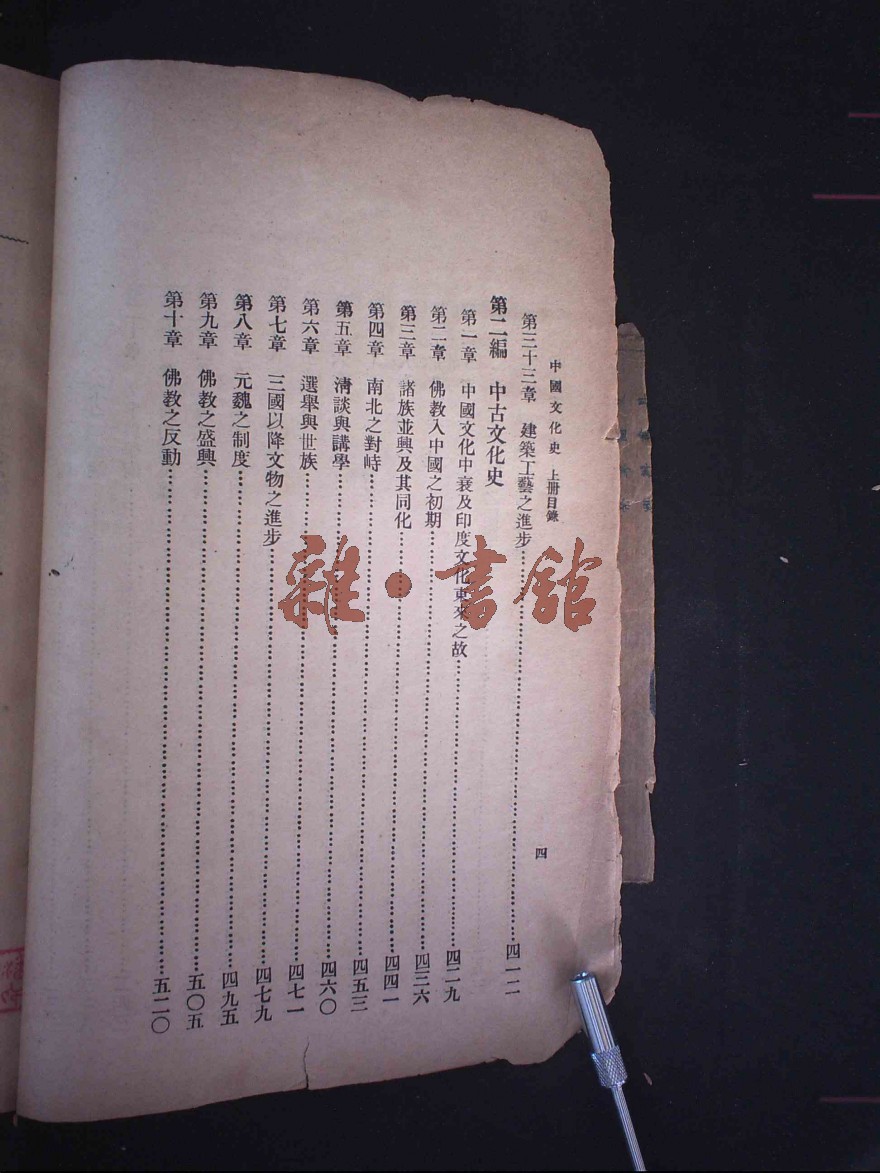 中國文化史 上册目錄
四
第三十三章 建築工藝之進步……四一二
第二編 中古文化史
第一章 中國文化中衰及印度文化東來之故……四二九
第二章 佛教入中國之初期……四三六
第三章 諸族並興及其同化……四四一
第四章 南北之對峙……四五三
第五章 清談與講學……四六〇
第六章 選舉與世族……四七一
第七章 三國以降文物之進步……四七九
第八章 元魏之制度……四九五
第九章 佛教之盛興……五〇五
第十章 佛教之反動……五二〇
雜·書館